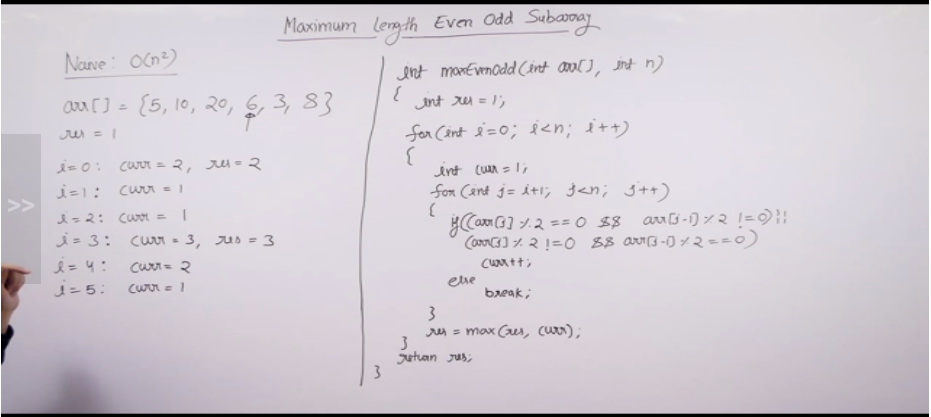 Maximum Length Even Odd Subarray
Naive: O(n²)
arr[] = {5, 10, 20, 6, 3, 8}
res = 1
i=0: curr = 2, res = 2
i=1: curr = 1
i=2: curr = 1
i=3: curr = 3, res = 3
i=4: curr = 2
i=5: curr = 1
int maxEvenOdd(int arr[], int n)
{
int res = 1;
for(int i=0; i<n; i++)
{
int curr = 1;
for(int j=i+1; j<n; j++)
{
if((arr[j] % 2 == 0 && arr[j-1] % 2 != 0) ||
(arr[j] % 2 != 0 && arr[j-1] % 2 == 0)
curr++;
else
break;
}
res = max(res, curr);
}
return res;
}
>>